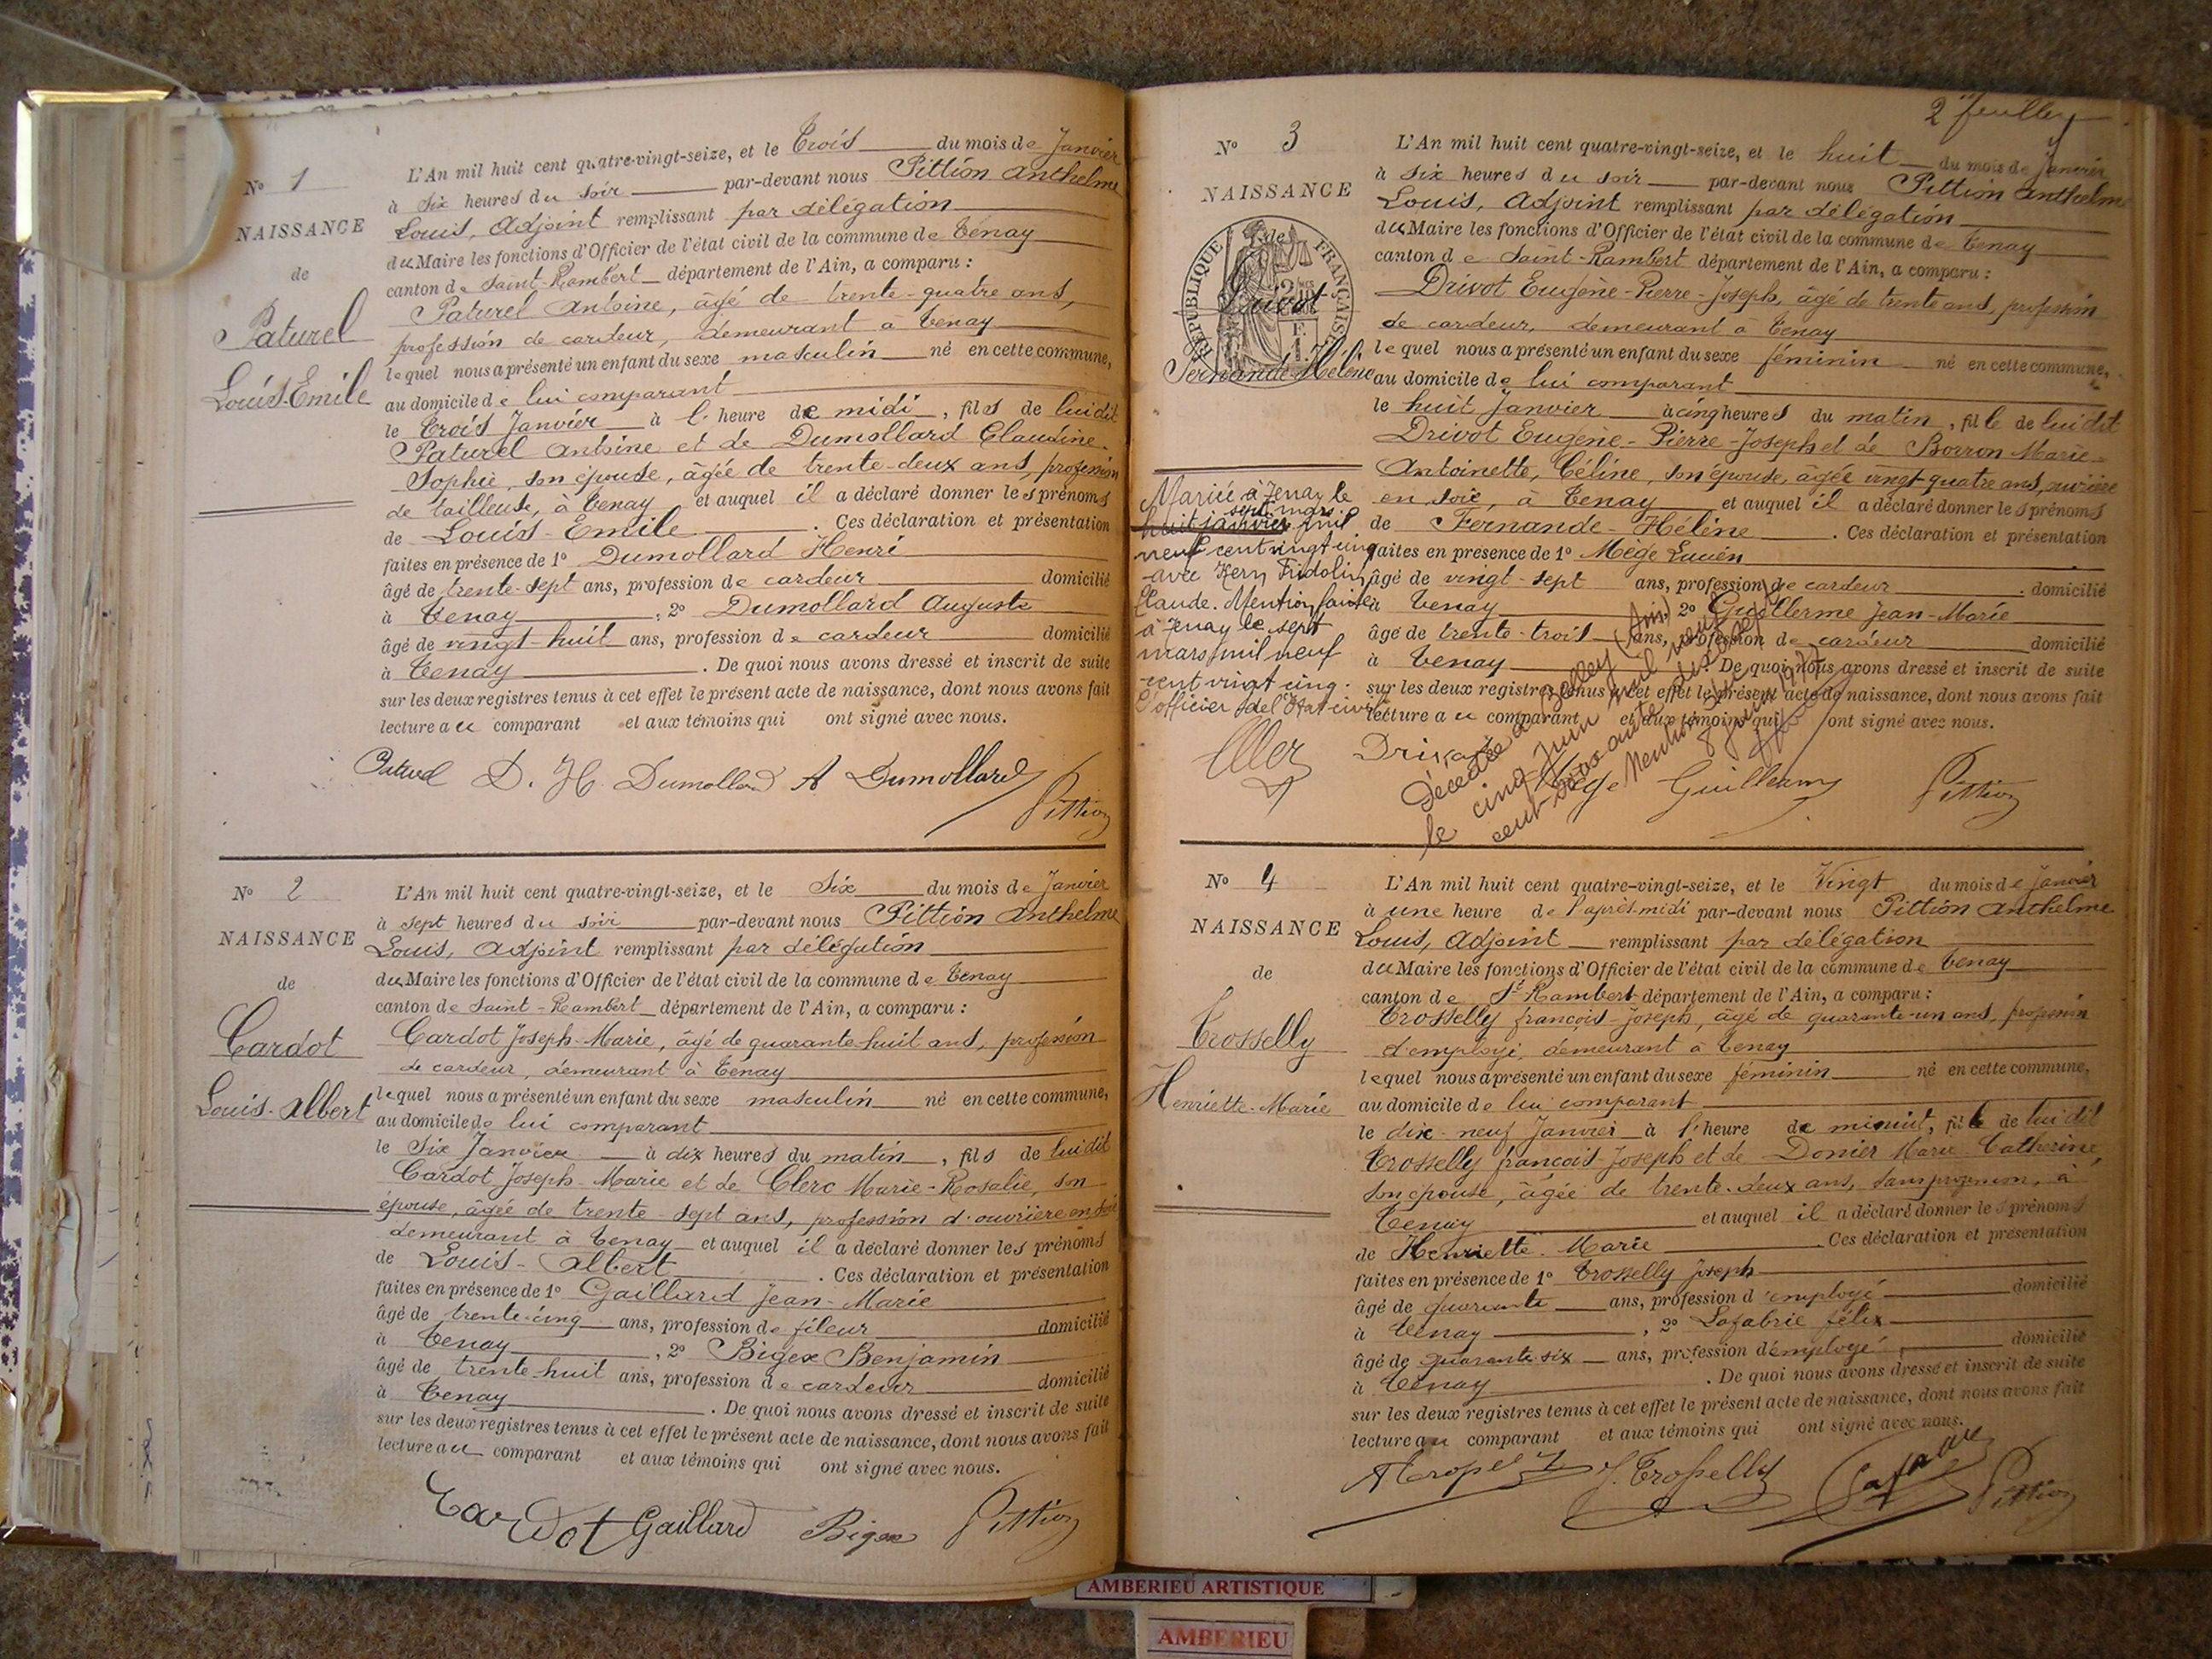 N° 1
NAISSANCE
de
Paturel
Louis-Emile
L'An mil huit cent quatre-vingt-seize, et le Trois du mois de Janvier
à six heures du soir par-devant nous Pittion Anthelme
Louis, Adjoint remplissant par délégation
du Maire les fonctions d'Officier de l'état civil de la commune de Tenay
canton de Saint-Rambert département de l'Ain, a comparu :
Paturel Antoine, âgé de trente-quatre ans,
profession de cardeur, demeurant à Tenay
lequel nous a présenté un enfant du sexe masculin né en cette commune,
au domicile de lui comparant
le Trois Janvier à l' heure de midi, fils de lui dit
Paturel Antoine et de Dumollard Claudine-
Sophie, son épouse, âgée de trente-deux ans, profession
de tailleuse, à Tenay et auquel il a déclaré donner les prénoms
de Louis-Emile. Ces déclaration et présentation
faites en présence de 1° Dumollard Henri
âgé de trente-sept ans, profession de cardeur domicilié
à Tenay, 2° Dumollard Auguste
âgé de vingt-huit ans, profession de cardeur domicilié
à Tenay. De quoi nous avons dressé et inscrit de suite
sur les deux registres tenus à cet effet le présent acte de naissance, dont nous avons fait
lecture au comparant et aux témoins qui ont signé avec nous.
Paturel D. H. Dumollard A Dumollard Pittion
N° 2
NAISSANCE
de
Cardot
Louis-Albert
L'An mil huit cent quatre-vingt-seize, et le Six du mois de Janvier
à sept heures du soir par-devant nous Pittion Anthelme
Louis, Adjoint remplissant par délégation
du Maire les fonctions d'Officier de l'état civil de la commune de Tenay
canton de Saint-Rambert département de l'Ain, a comparu :
Cardot Joseph-Marie, âgé de quarante-huit ans, profession
de cardeur, demeurant à Tenay
lequel nous a présenté un enfant du sexe masculin né en cette commune,
au domicile de lui comparant
le Six Janvier à dix heures du matin, fils de lui dit
Cardot Joseph-Marie et de Clerc Marie-Rosalie, son
épouse, âgée de trente-sept ans, profession d'ouvrière en soie
demeurant à Tenay et auquel il a déclaré donner les prénoms
de Louis-Albert. Ces déclaration et présentation
faites en présence de 1° Gaillard Jean-Marie
âgé de trente-cinq ans, profession de fileur domicilié
à Tenay, 2° Bigex Benjamin
âgé de trente-huit ans, profession de cardeur domicilié
à Tenay. De quoi nous avons dressé et inscrit de suite
sur les deux registres tenus à cet effet le présent acte de naissance, dont nous avons fait
lecture au comparant et aux témoins qui ont signé avec nous.
Cardot Gaillard Bigex Pittion
2e feuillet
N° 3
NAISSANCE
de
RÉPUBLIQUE FRANÇAISE
Drivot
Fernande-Hélène
L'An mil huit cent quatre-vingt-seize, et le huit du mois de Janvier
à six heures du soir par-devant nous Pittion Anthelme
Louis, Adjoint remplissant par délégation
du Maire les fonctions d'Officier de l'état civil de la commune de Tenay
canton de Saint-Rambert département de l'Ain, a comparu :
Drivot Eugène-Pierre-Joseph, âgé de trente ans, profession
de cardeur, demeurant à Tenay
lequel nous a présenté un enfant du sexe féminin né en cette commune,
au domicile de lui comparant
le huit Janvier à cinq heures du matin, fille de lui dit
Drivot Eugène-Pierre-Joseph et de Borron Marie-
Antoinette, Céline, son épouse, âgée vingt-quatre ans, ouvrière
en soie, à Tenay et auquel il a déclaré donner les prénoms
de Fernande-Hélène. Ces déclaration et présentation
faites en présence de 1° Mège Lucien
âgé de vingt-sept ans, profession de cardeur domicilié
à Tenay, 2° Guillerme Jean-Marie
âgé de trente-trois ans, profession de cardeur domicilié
à Tenay. De quoi nous avons dressé et inscrit de suite
sur les deux registres tenus à cet effet le présent acte de naissance, dont nous avons fait
lecture au comparant et aux témoins qui ont signé avec nous.
Drivot Mège Guillerme Pittion
Mariée à Tenay le
sept mars
huit janvier mil
neuf cent vingt cinq
avec Kern Fridolin
Claude. Mention faite
à Tenay le sept
mars mil neuf
cent vingt cinq.
L'officier de l'Etat civil
Décédée à Belley (Ain)
le cinq Juin mil neuf
cent soixante dix
Mention 8 juin 1970
N° 4
NAISSANCE
de
Trosselly
Henriette-Marie
L'An mil huit cent quatre-vingt-seize, et le Vingt du mois de Janvier
à une heure de l'après-midi par-devant nous Pittion Anthelme
Louis, Adjoint remplissant par délégation
du Maire les fonctions d'Officier de l'état civil de la commune de Tenay
canton de St Rambert département de l'Ain, a comparu :
Trosselly françois-Joseph, âgé de quarante-un ans, profession
d'employé, demeurant à Tenay
lequel nous a présenté un enfant du sexe féminin né en cette commune,
au domicile de lui comparant
le dix-neuf Janvier à l'heure de minuit, fille de lui dit
Trosselly françois-Joseph et de Donier Marie Catherine,
son épouse, âgée de trente-deux ans, sans profession, à
Tenay et auquel il a déclaré donner les prénoms
de Henriette-Marie Ces déclaration et présentation
faites en présence de 1° Trosselly Joseph
âgé de quarante ans, profession d'employé domicilié
à Tenay, 2° Lafabrie félix
âgé de quarante-six ans, profession d'employé domicilié
à Tenay. De quoi nous avons dressé et inscrit de suite
sur les deux registres tenus à cet effet le présent acte de naissance, dont nous avons fait
lecture au comparant et aux témoins qui ont signé avec nous.
J. Trosselly Pittion
AMBERIEU ARTISTIQUE
AMBERIEU